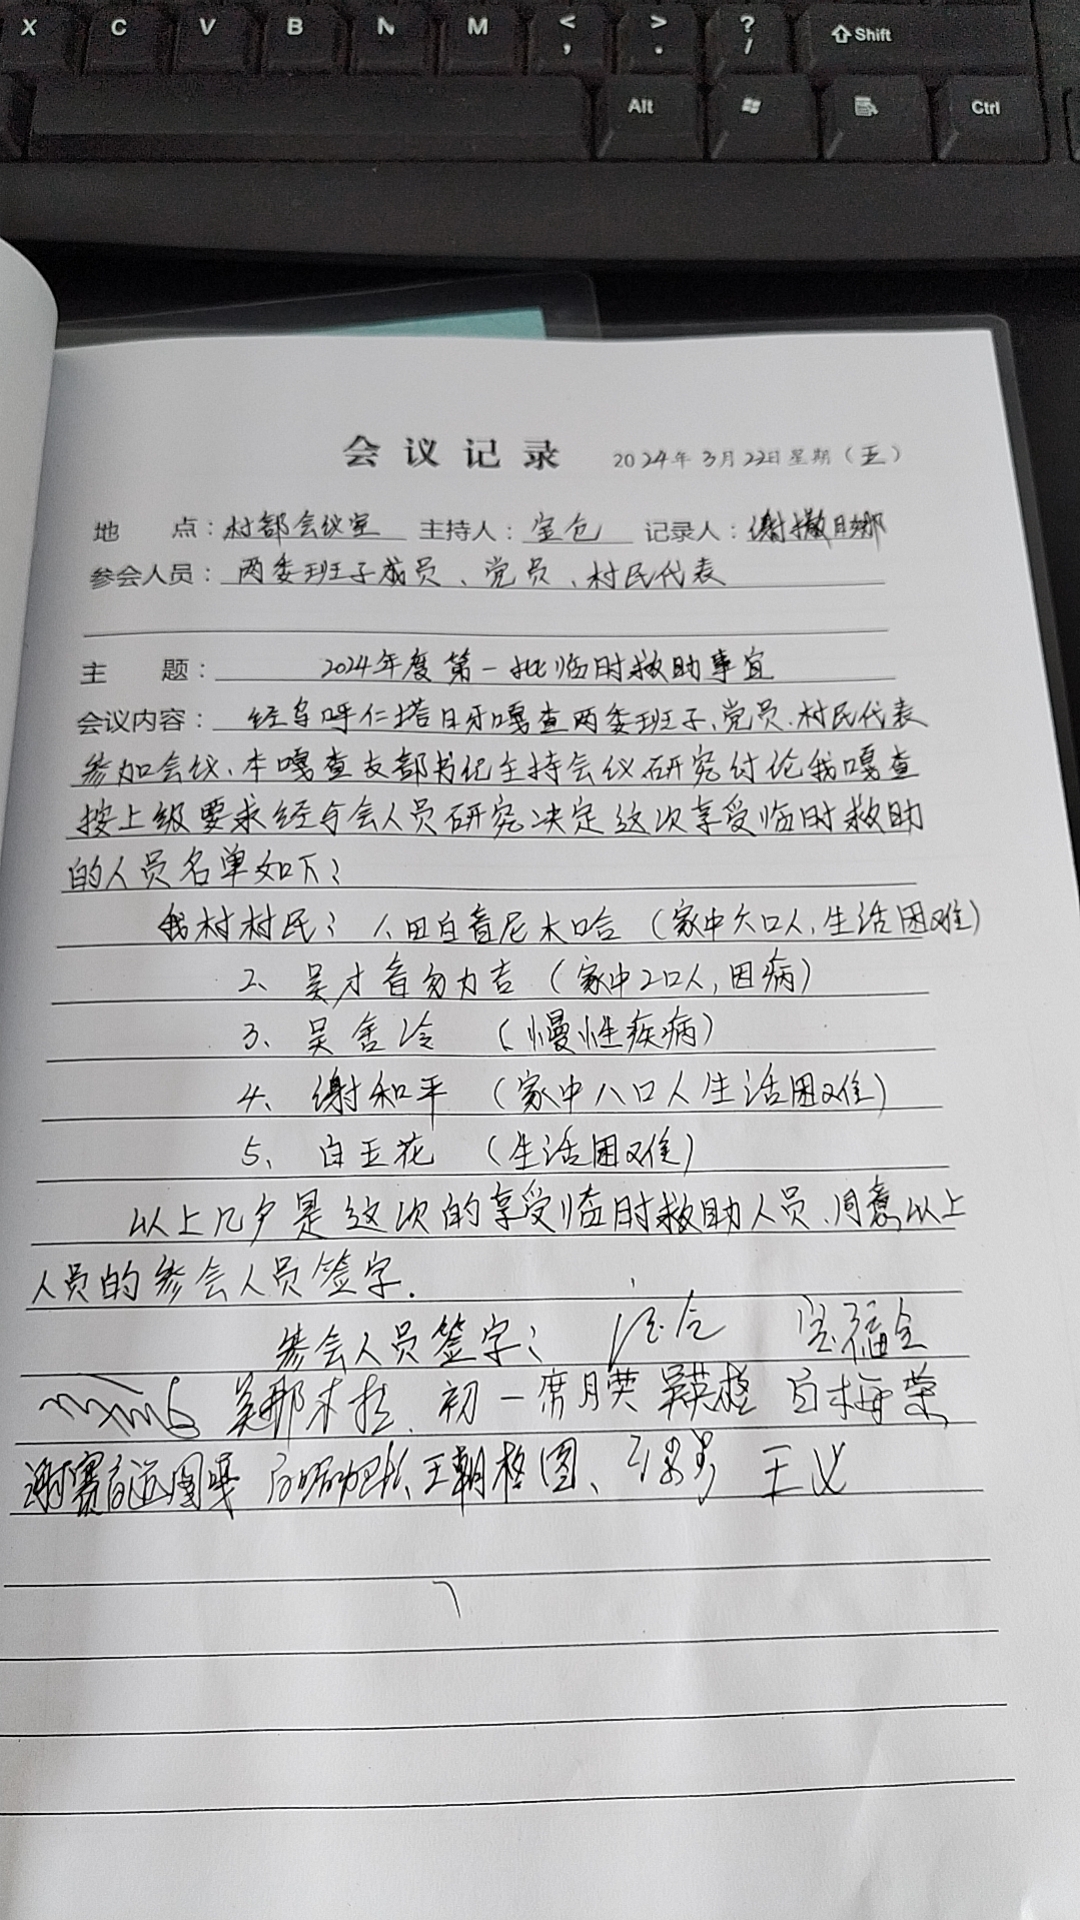 X C V B N M < , > . ? / Shift
Alt Ctrl
会议记录 2024年3月22日星期(五)
地 点:村部会议室 主持人:宝仓 记录人:谢撒日娜
参会人员:两委班子成员、党员、村民代表
主 题:2024年度第一批临时救助事宜
会议内容:经乌呼仁塔日牙嘎查两委班子、党员、村民代表
参加会议、本嘎查支部书纪主持会议研究讨论我嘎查
按上级要求经与会人员研究决定这次享受临时救助
的人员名单如下:
我村村民: 1、田白音尼木哈(家中六口人,生活困难)
2、吴才音勿力吉(家中2口人,因病)
3、吴舍冷(慢性疾病)
4、谢和平(家中八口人生活困难)
5、白玉花(生活困难)
以上几夕是这次的享受临时救助人员、同意以上
人员的参会人员签字.
参会人员签字: 宝仓 宝福全
吴那木拉 初一 席月英 吴英格 白梅荣
王朝格图、 王义